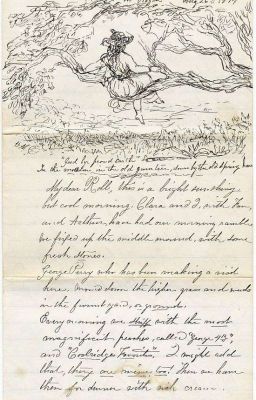 "God be praised
In the meadow in the old garden, down by the old spring
My dear Roll, this is a bright sunshiny
but cool morning. Clara and I, with Fan,
and Arthur, have had our morning ramble
We fixed up the middle mound, with some
fresh stones.
George Perry who has been making a visit
here. Mowed down the higher grass and weeds
in the front yard, or ground.
Every morning are stuff with the most
magnificent peaches, called "George 4th",
and "Coolridge Favorites" I might add
that, they are mine, too! Then we have
them for dinner with rich cream.